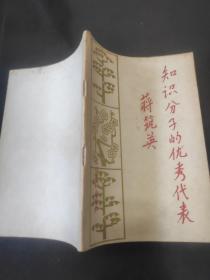 知识分子的优秀代表
蒋筑英